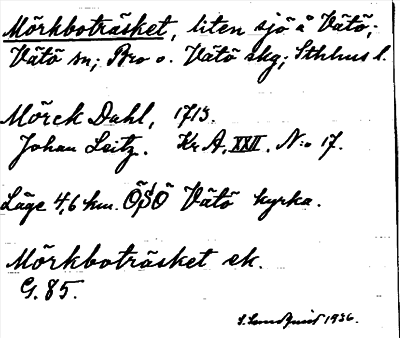 Mörkboträsket, liten sjö å Vätö;
Vätö sn; Bro o. Vätö skg; Sthlms l.
Mörck Dahl, 1713.
Johan Leitz. Kr A, XXII. N:o 17.
Läge 4,6 km. ÖSÖ Vätö kyrka.
Mörkboträsket ek.
G. 85.
1936.